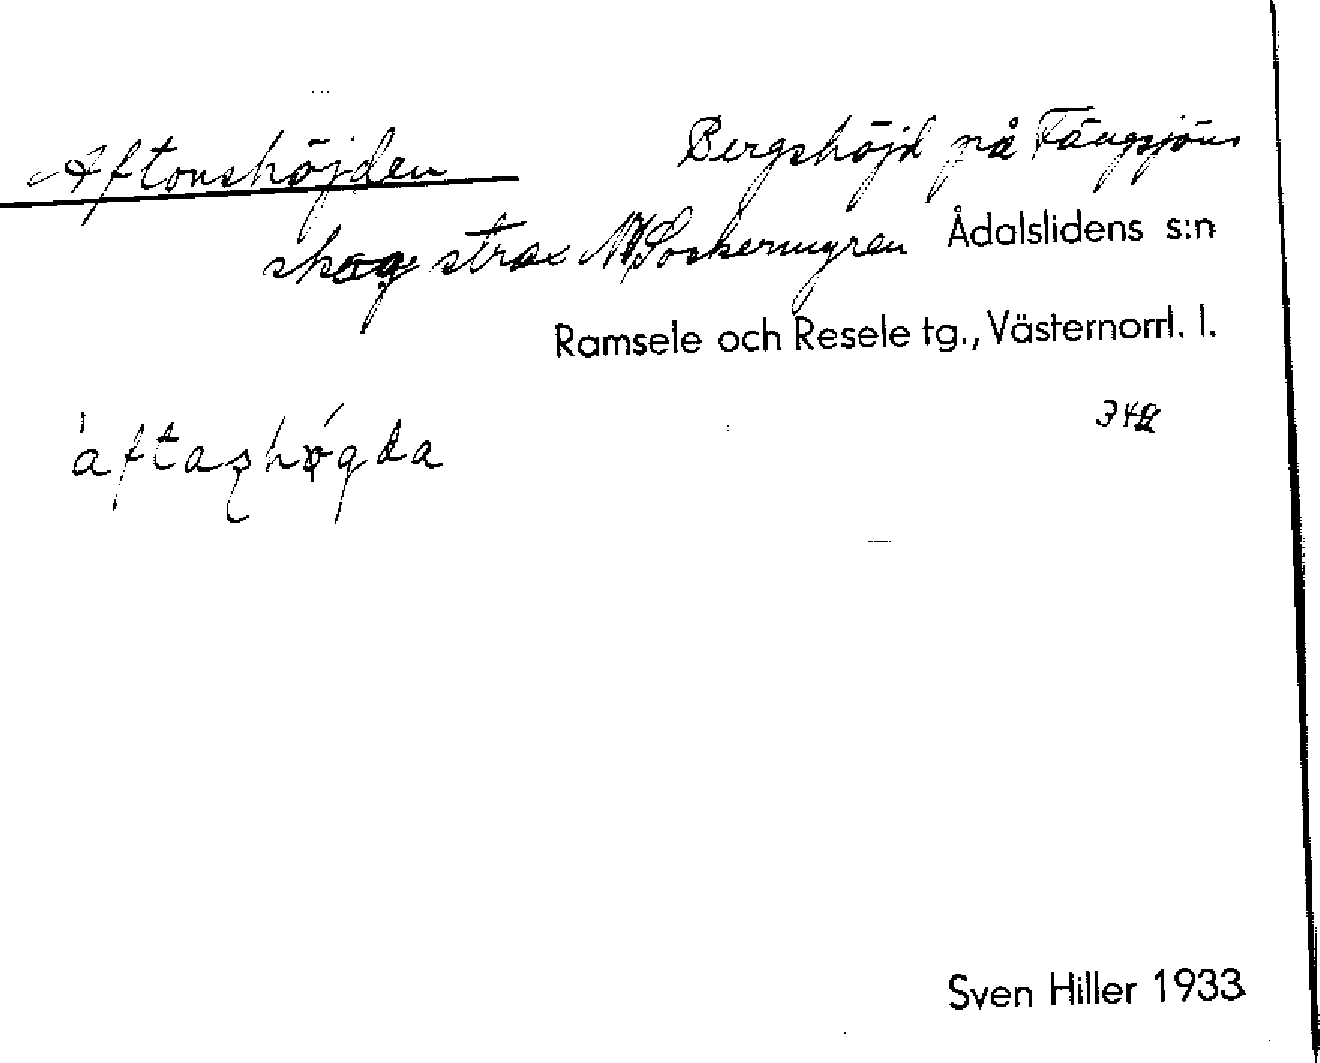 Aftonshöjden Bergshöjd på Fängsjöns
skog strax NV Sockermyren Ådalslidens s:n
Ramsele och Resele tg., Västernorrl. l.
Sven Hiller 1933